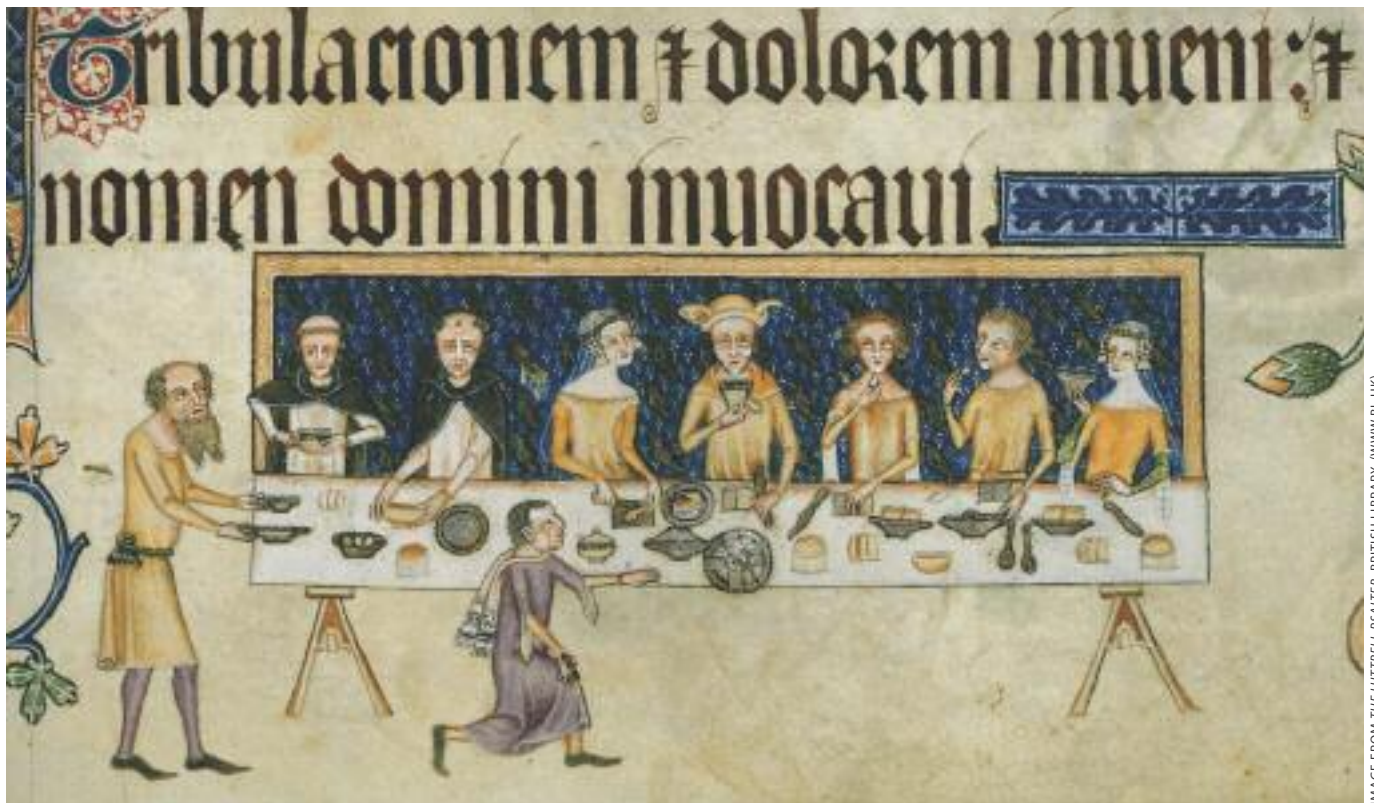 Tribulacionem ⁊ dolorem inueni: ⁊
nomen domini inuocaui.
IMAGE FROM THE LUTTRELL PSALTER, BRITISH LIBRARY (WWW.BL.UK)